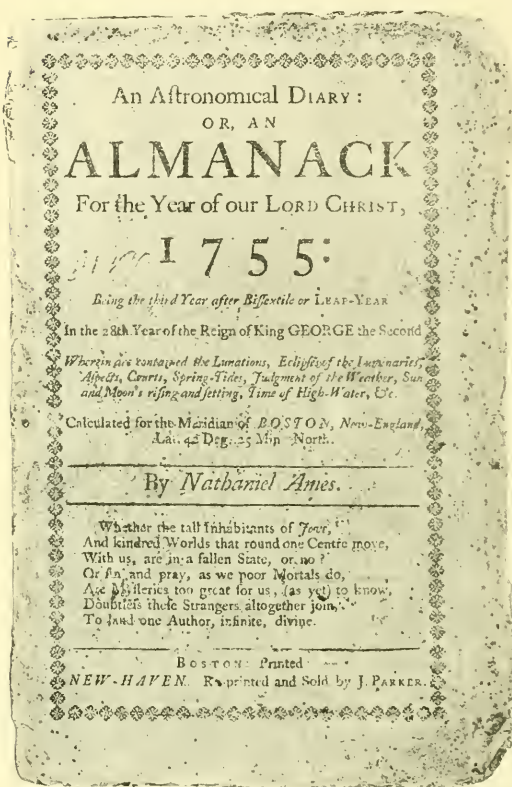 An Aſtronomical DIARY:
OR, AN
ALMANACK
For the Year of our LORD CHRIST,
1755:
Being the third Year after Biſſextile or LEAP-YEAR
In the 28th Year of the Reign of King GEORGE the Second
Wherein are contained the Lunations, Eclipſes of the Luminaries,
Aſpects, Courts, Spring-Tides, Judgment of the Weather, Sun
and Moon's riſing and ſetting, Time of High-Water, &c.
Calculated for the Meridian of BOSTON, New-England,
Lat. 42 Deg. 25 Min North.
By Nathaniel Ames.
Whether the tall Inhabitants of Jove,
And kindred Worlds that round one Centre move,
With us, are in a fallen State, or no?
Or ſin and pray, as we poor Mortals do,
Are Myſteries too great for us, (as yet) to know,
Doubtleſs theſe Strangers altogether join,
To laud one Author, infinite, divine.
BOSTON: Printed
NEW-HAVEN. Re-printed and Sold by J. PARKER.